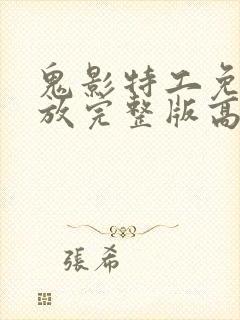 鬼影特工免
放完整版高
張希